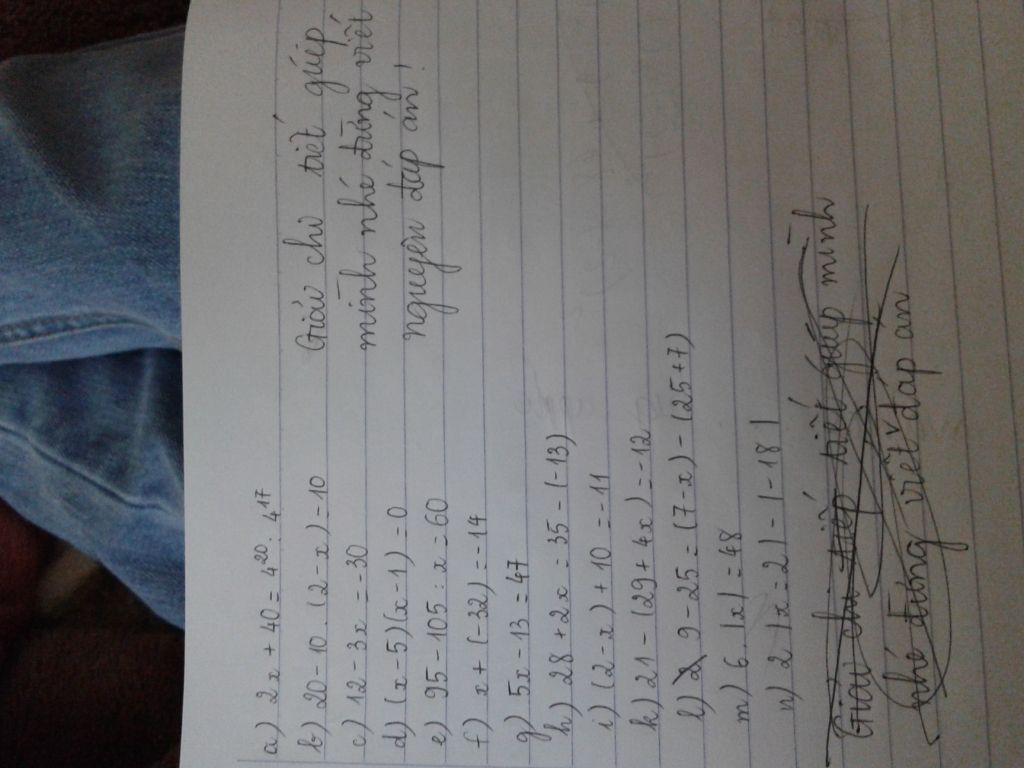 a) 2x + 40 = 4²⁰ : 4¹⁷
b) 20 - 10 . (2 - x) = 10
c) 12 - 3x = -30
d) (x - 5)(x - 1) = 0
e) 95 - 105 : x = 60
f) x + (-32) = -14
g) 5x - 13 = 47
h) 28 + 2x = 35 - (-13)
i) (2 - x) + 10 = -11
k) 21 - (29 + 4x) = -12
l) 9 - 25 = (7 - x) - (25 + 7)
m) 6 . |x| = 48
n) 2 |x = 2| - |-18|
Giải chi tiết giúp
mình nhé đừng viết
nguyên đáp án !
Giải chi tiếp tiết giúp mình
nhé đừng viết đáp án